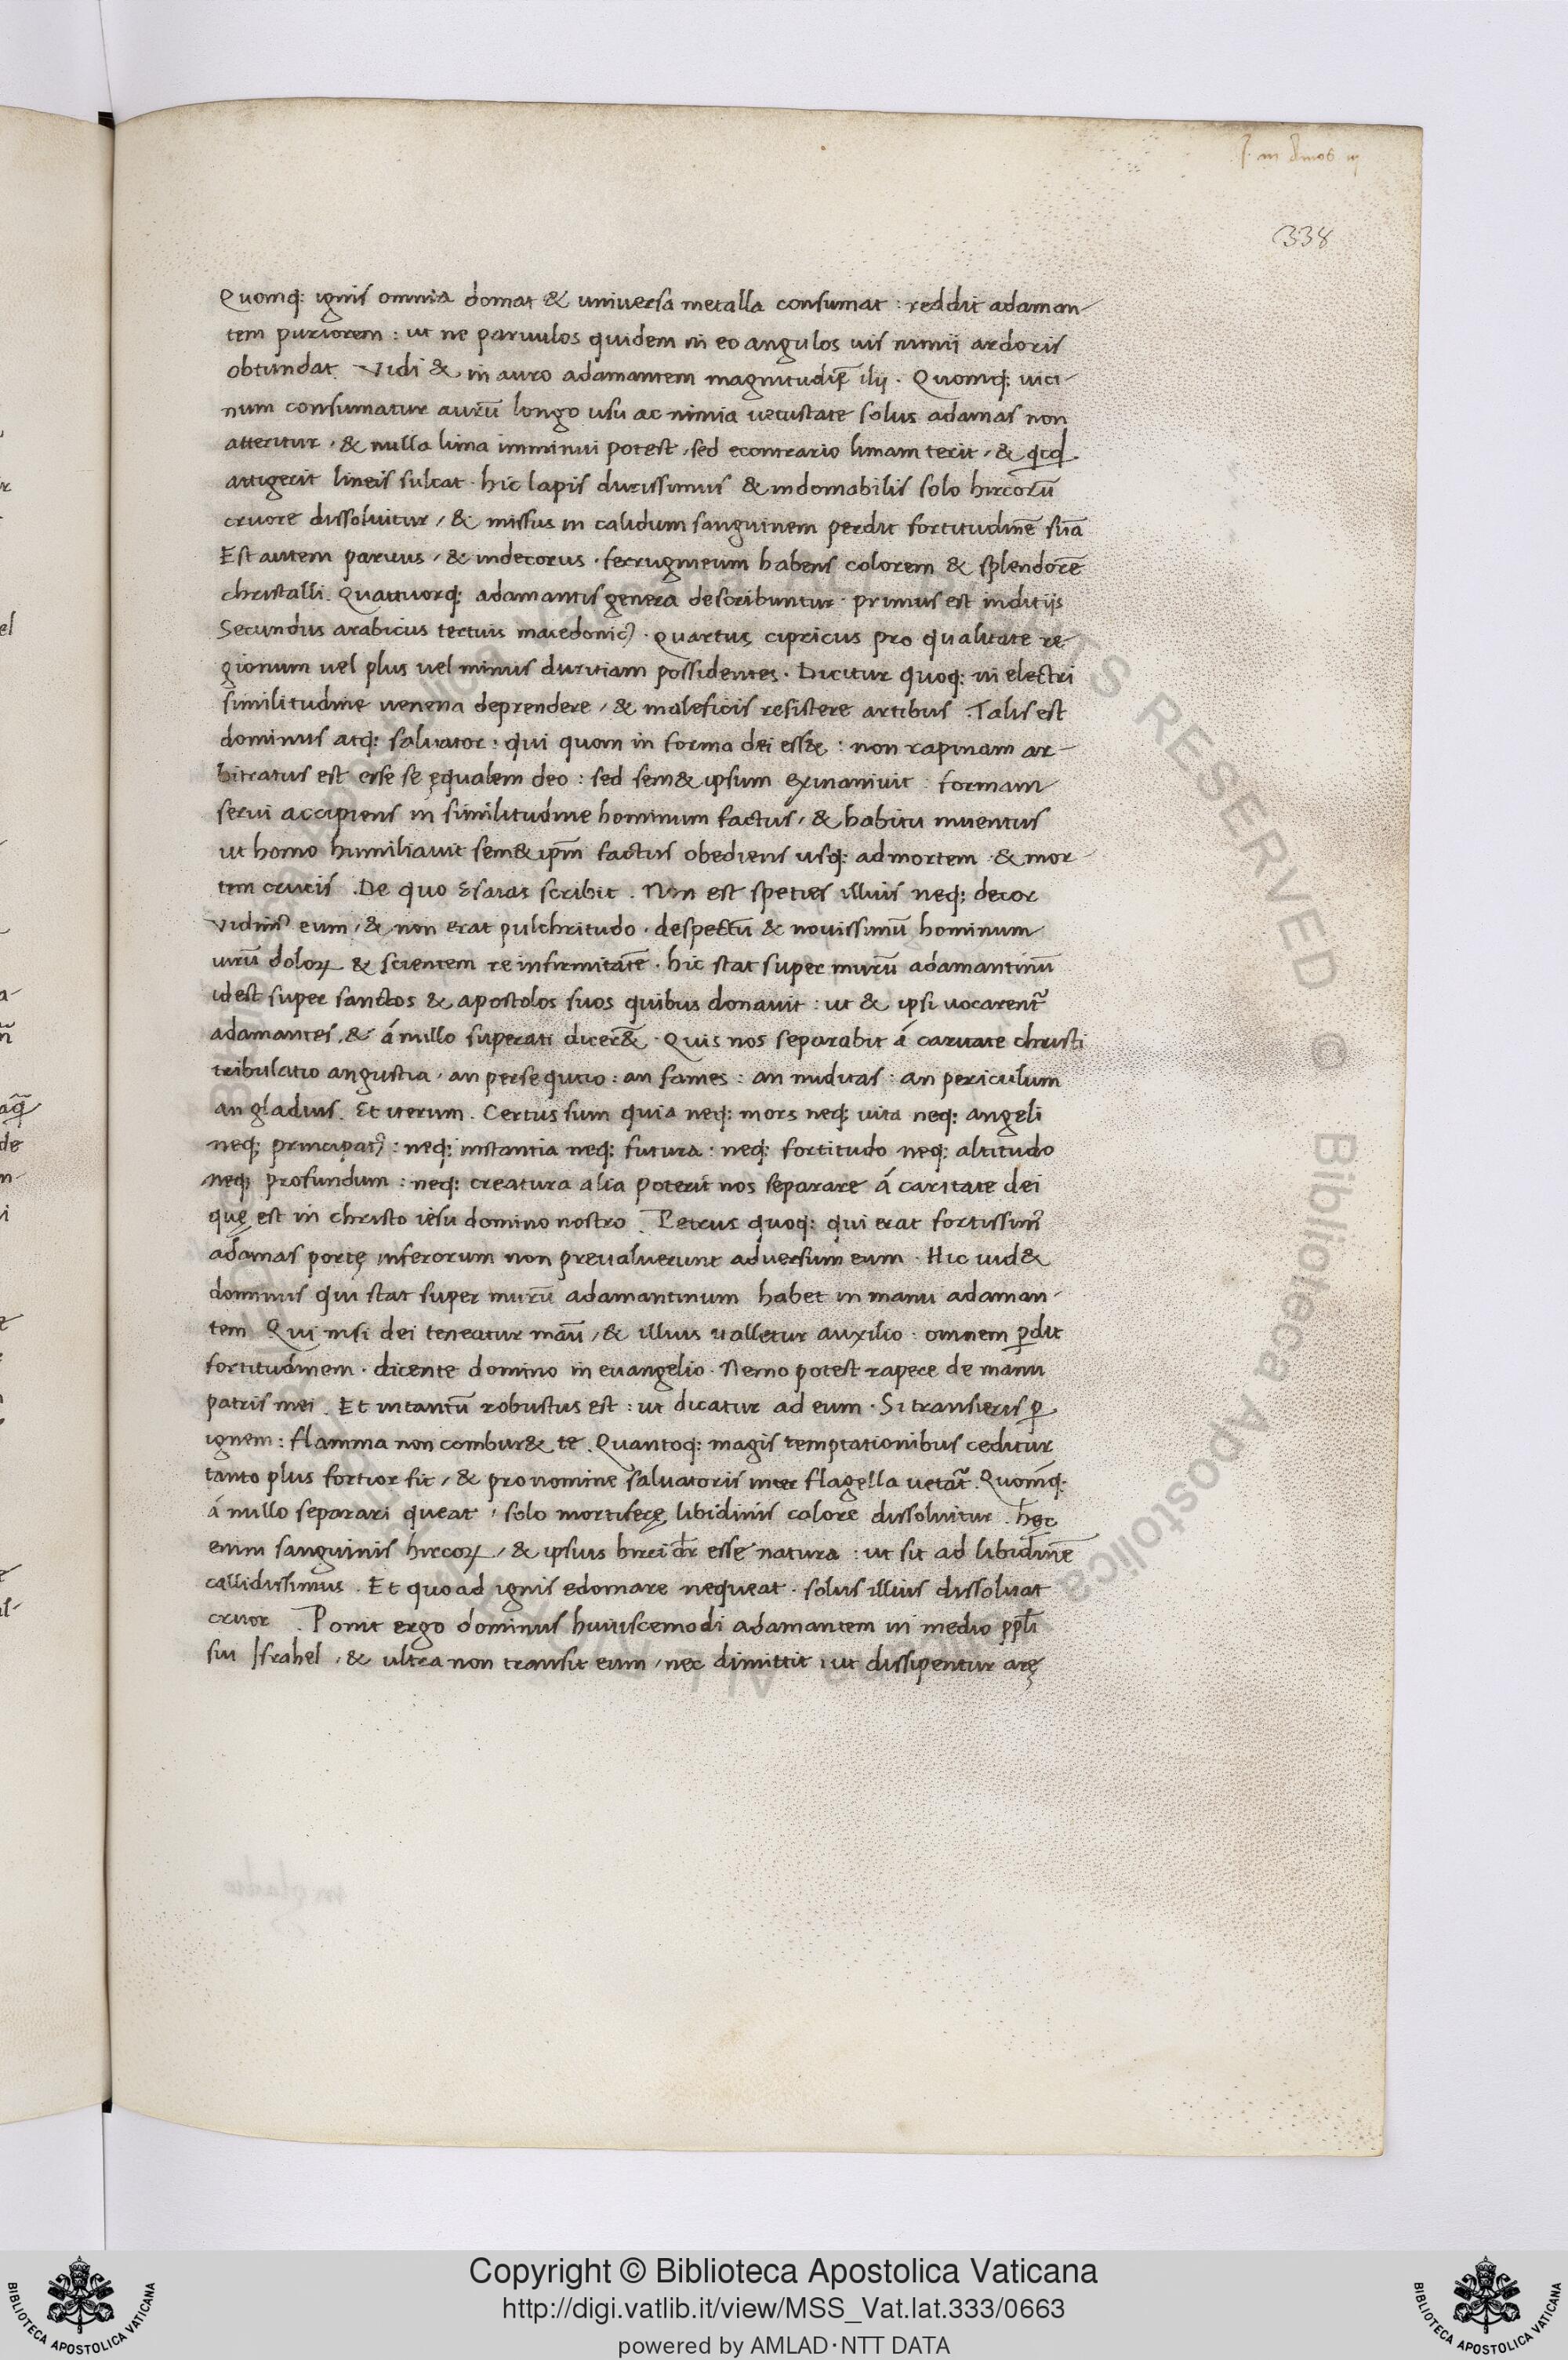 338
Quomq: ignis omnia domat & universa metalla consumat : reddit adaman-
tem puriorem : ut ne paruulos quidem in eo angulos uis nimii ardoris
obtundat. Vidi & in auro adamantem magnitudīe ilij . Quomq: uici-
num consumatur aurū longo usu ac nimia uetustate solus adamas non
atteritur , & nulla lima imminui potest , sed econtrario limam terit , & qcqd
attigerit lineis sulcat . hic lapis durissimus & indomabilis solo hircorū
cruore dissoluitur , & missus in calidum sanguinem perdit fortitudinē suā
Est autem paruus , & indecorus . ferrugineum habens colorem & splendorē
christalli . Quattuorq: adamantis genera describuntur . primus est inditijs
Secundus arabicus tertius macedonic⁹ . quartus cipricus pro qualitate re-
gionum uel plus uel minus duritiam possidentes . Dicitur quoq: in electri
similitudine uenena deprendere , & maleficis resistere artibus . Talis est
dominus atq: saluator : qui quom in forma dei ess& : non rapinam ar-
bitratus est esse se ęqualem deo : sed sem& ipsum exinaniuit . formam
serui accipiens in similitudine hominum factus , & habitu inuentus
ut homo humiliauit sem& ip̄m factus obediens usq: ad mortem & mor-
tem crucis . De quo Esaias scribit . Non est speties illius neq: decor
Vidim⁹ eum , & non erat pulchritudo . despectū & nouissimū hominum
uirū doloꝝ & scientem re infirmitatē . hic stat super murū adamantinū
idest super sanctos & apostolos suos quibus donauit : ut & ipsi uocarent̃
adamantes . & á nullo superati dicer̃& . Quis nos separabit á caritate christi
tribulatio angustia , an persequtio : an fames : an nuditas : an periculum
an gladius . Et iterum . Certus sum quia neq: mors neq: uita neq: angeli
neq: principat⁹ : neq: instantia neq: futura : neq: fortitudo neq: altitudo
neq: profundum : neq: creatura alia poterit nos separare á caritate dei
quę est in christo iesu domino nostro . Petrus quoq: qui erat fortissim⁹
adamas portę inferorum non preualuerunt aduersum eum . Hic uid&
dominus qui stat super murū adamantinum habet in manu adaman-
tem Qui nisi dei teneatur manū , & illius ualletur auxilio : omnem ꝑdit
fortitudinem . dicente domino in euangelio . Nemo potest rapere de manu
patris mei . Et intantū robustus est : ut dicatur ad eum . Si transieris ꝑ
ignem : flamma non combur& te . Quantoq: magis temptationibus ceditur
tanto plus fortior fit , & pro nomine saluatoris inter flagella uetat̃ . Quomq:
á nullo separari queat , solo mortiferę libidinis calore dissoluitur . hęc
enim sanguinis hircoꝝ , & ipsius hirci dr̄ esse natura : ut sit ad libidinē
callidissimus . Et quoad ignis edomare nequeat . solus illius dissoluat
cruor . Ponit ergo dominus huiuscemodi adamantem in medio ppl̄i
sui Israhel , & ultra non transit eum , nec dimittit : ut dissipentur arę
Copyright © Biblioteca Apostolica Vaticana
http://digi.vatlib.it/view/MSS_Vat.lat.333/0663
powered by AMLAD·NTT DATA